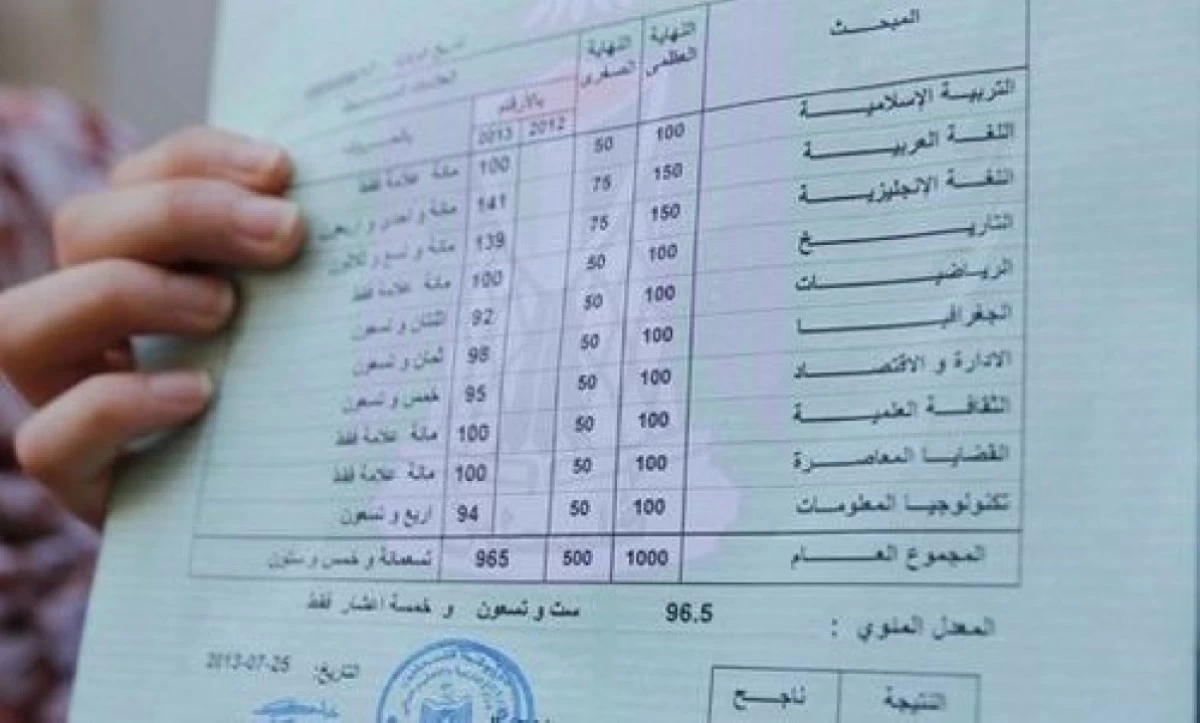 المبحـــث النهاية العظمى النهاية الصغرى بالأرقام
2012 2013
التربيـــة الإسلاميـــة 100 50 100 مائة علامة فقط
اللغـــة العربيـــة 150 75 141 مائة و احدى و اربعون
اللغـــة الإنجليزيـــة 150 75 139 مائة و تسع و ثلاثون
التاريـــخ 100 50 100 مائة علامة فقط
الرياضيـــات 100 50 92 اثنتان و تسعون
الجغرافيـــا 100 50 98 ثمان و تسعون
الادارة و الاقتصـــاد 100 50 95 خمس و تسعون
الثقافـــة العلميـــة 100 50 100 مائة علامة فقط
القضايـــا المعاصـــرة 100 50 100 مائة علامة فقط
تكنولوجيـــا المعلومـــات 100 50 94 اربع و تسعون
المجموع العـــام 1000 500 965 تسعمائة و خمس و ستون
المعدل المئوي : 96.5 ست و تسعون و خمسة اعشار فقط
التاريخ: 2013-07-25
النتيجة ناجـــح